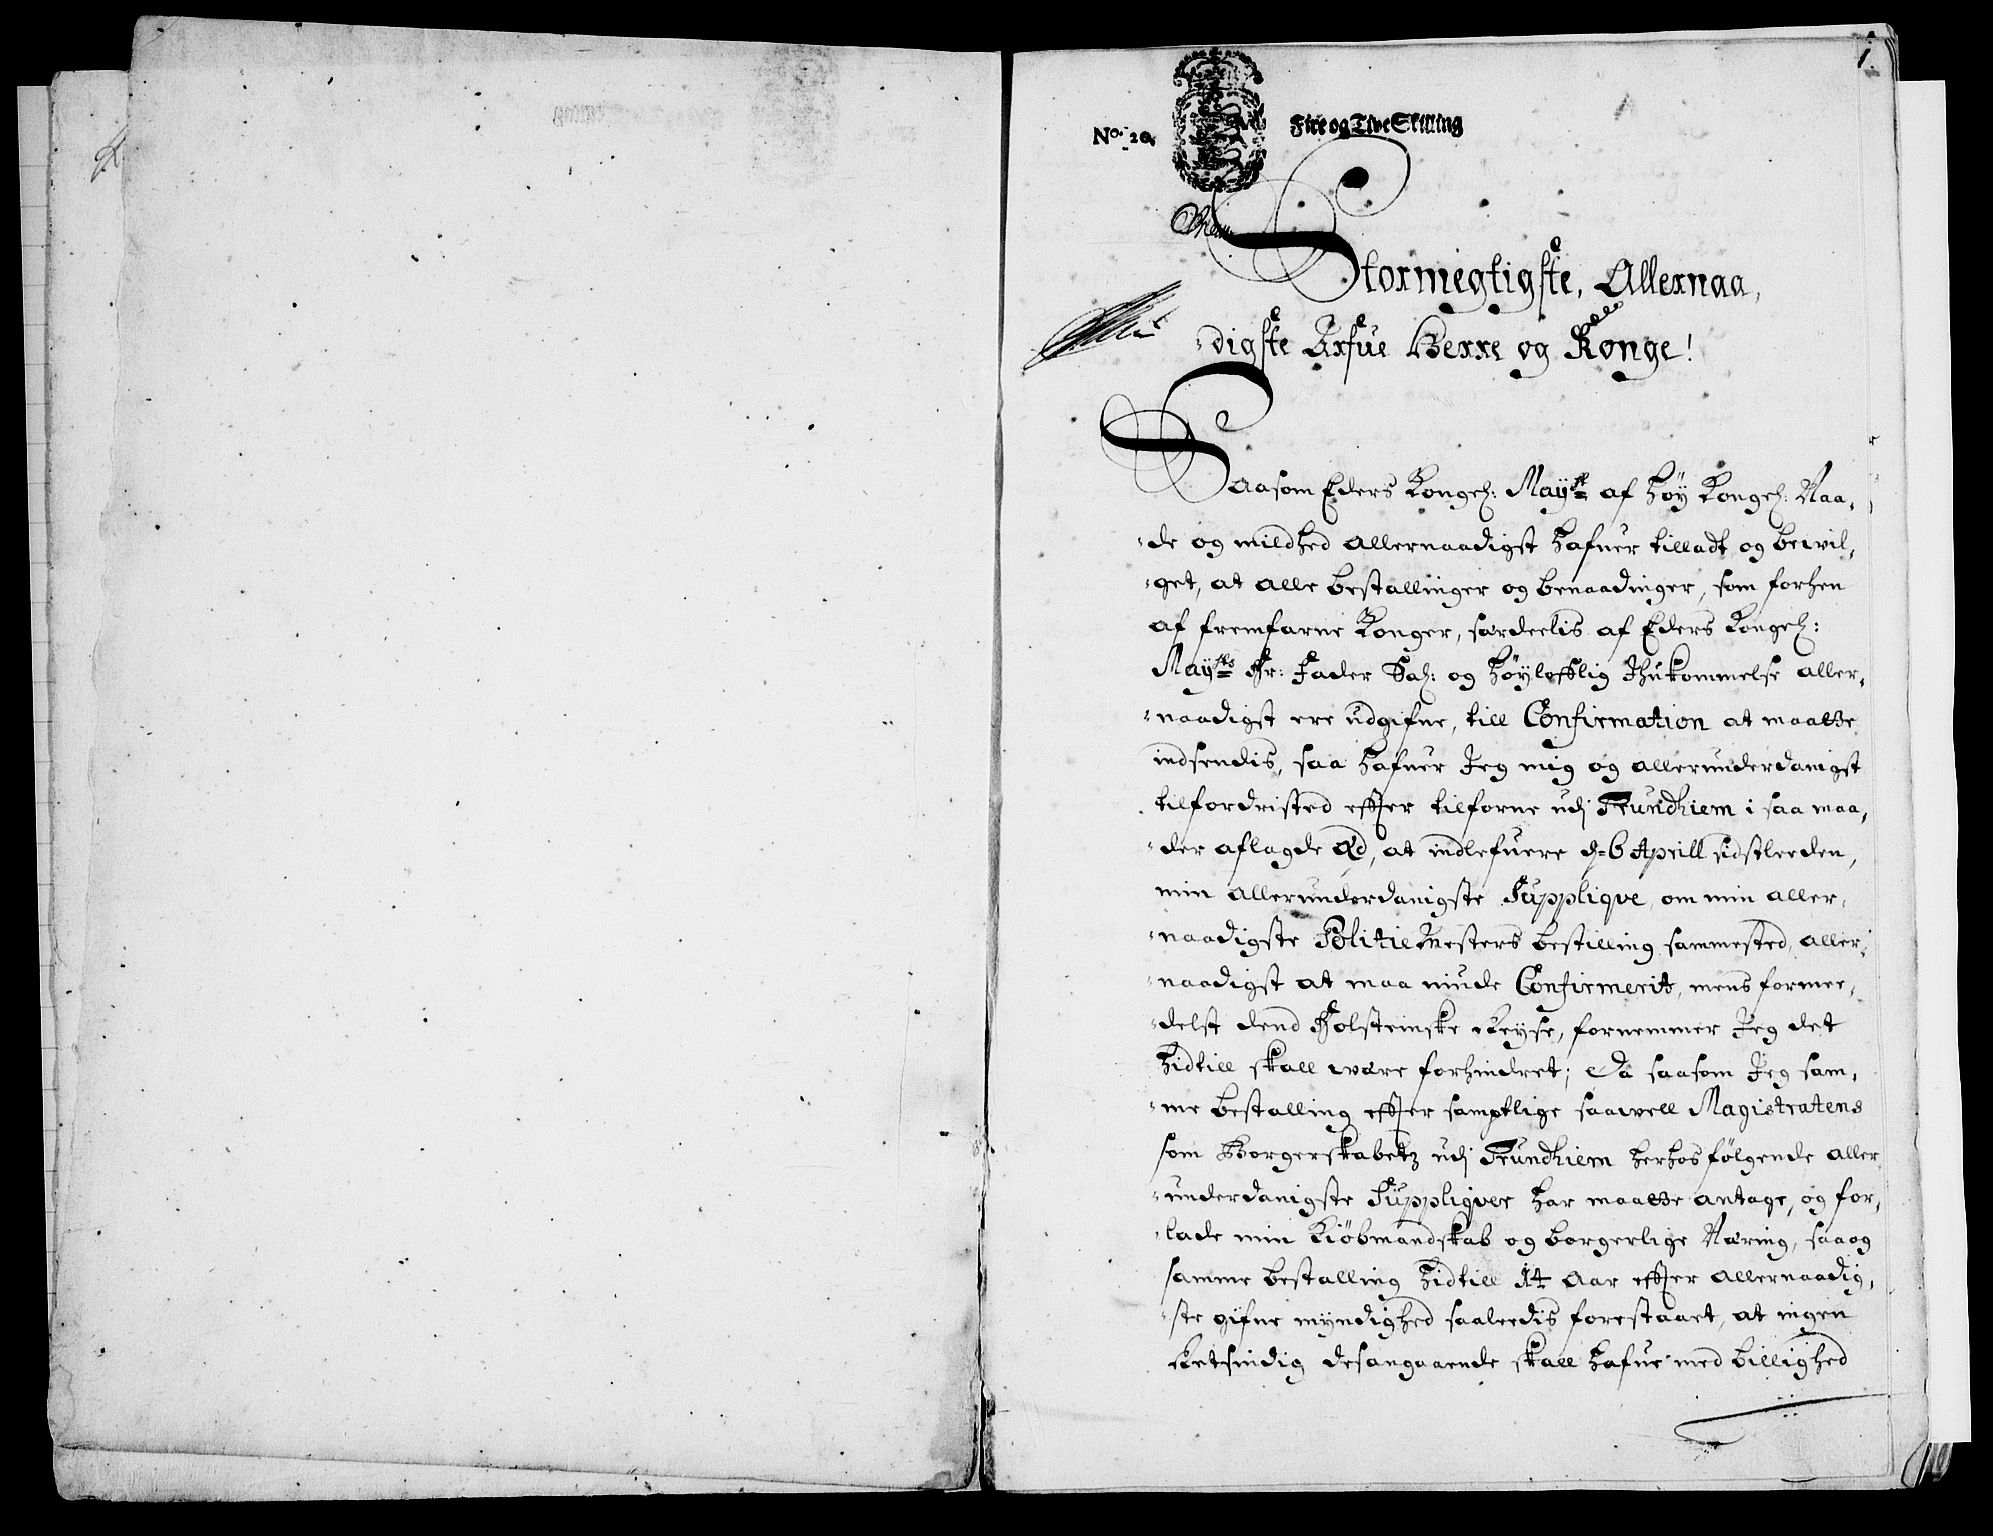 1.
No. 20.
Fire og Tive Skilling
Stormegtigste, Allernaa,
digste Arfue Herre og Konge!
Saasom Eders Kongel: Mayst: af høy Kongel: Naa,
de og mildhed allernaadigst hafuer tilladt og bewil,
get, at alle bestallinger og benaadinger, som forhen
af fremfarne Konger, særdeelis af Eders Kongel:
Maysts Hr: Fader Sal: og høylofflig Ihukommelse aller,
naadigst ere udgifne, till Confirmation at maatte
indsendis, saa hafuer Jeg mig og allerunderdanigst
tilfordristed effter tilforne udj Trundhiem i saa maa,
der aflagde Æd, at indlefuere d: 6 Aprill sidstleeden,
min allerunderdanigste Supplique, om min aller,
naadigste Politiemesters bestilling sammested, aller,
naadigst at maa niude Confirmerit, mens forme,
delst dend Holsteinske Reyse, fornemmer Jeg det
hidtill skall wære forhindret; Da saasom Jeg sam,
me bestalling effter samptlige saawell Magistratens
som Borgerskabetz udj Trundhiem herhos følgende aller,
underdanigste Suppliquer har maatte antage, og for,
lade min Kiöbmandskab og borgerlige Næring, saa og
samme bestalling hidtill 14 aar effter allernaadig,
ste gifne myndighed saaledis forestaaet, at ingen
Retsindig desangaaende skall hafue med billighed